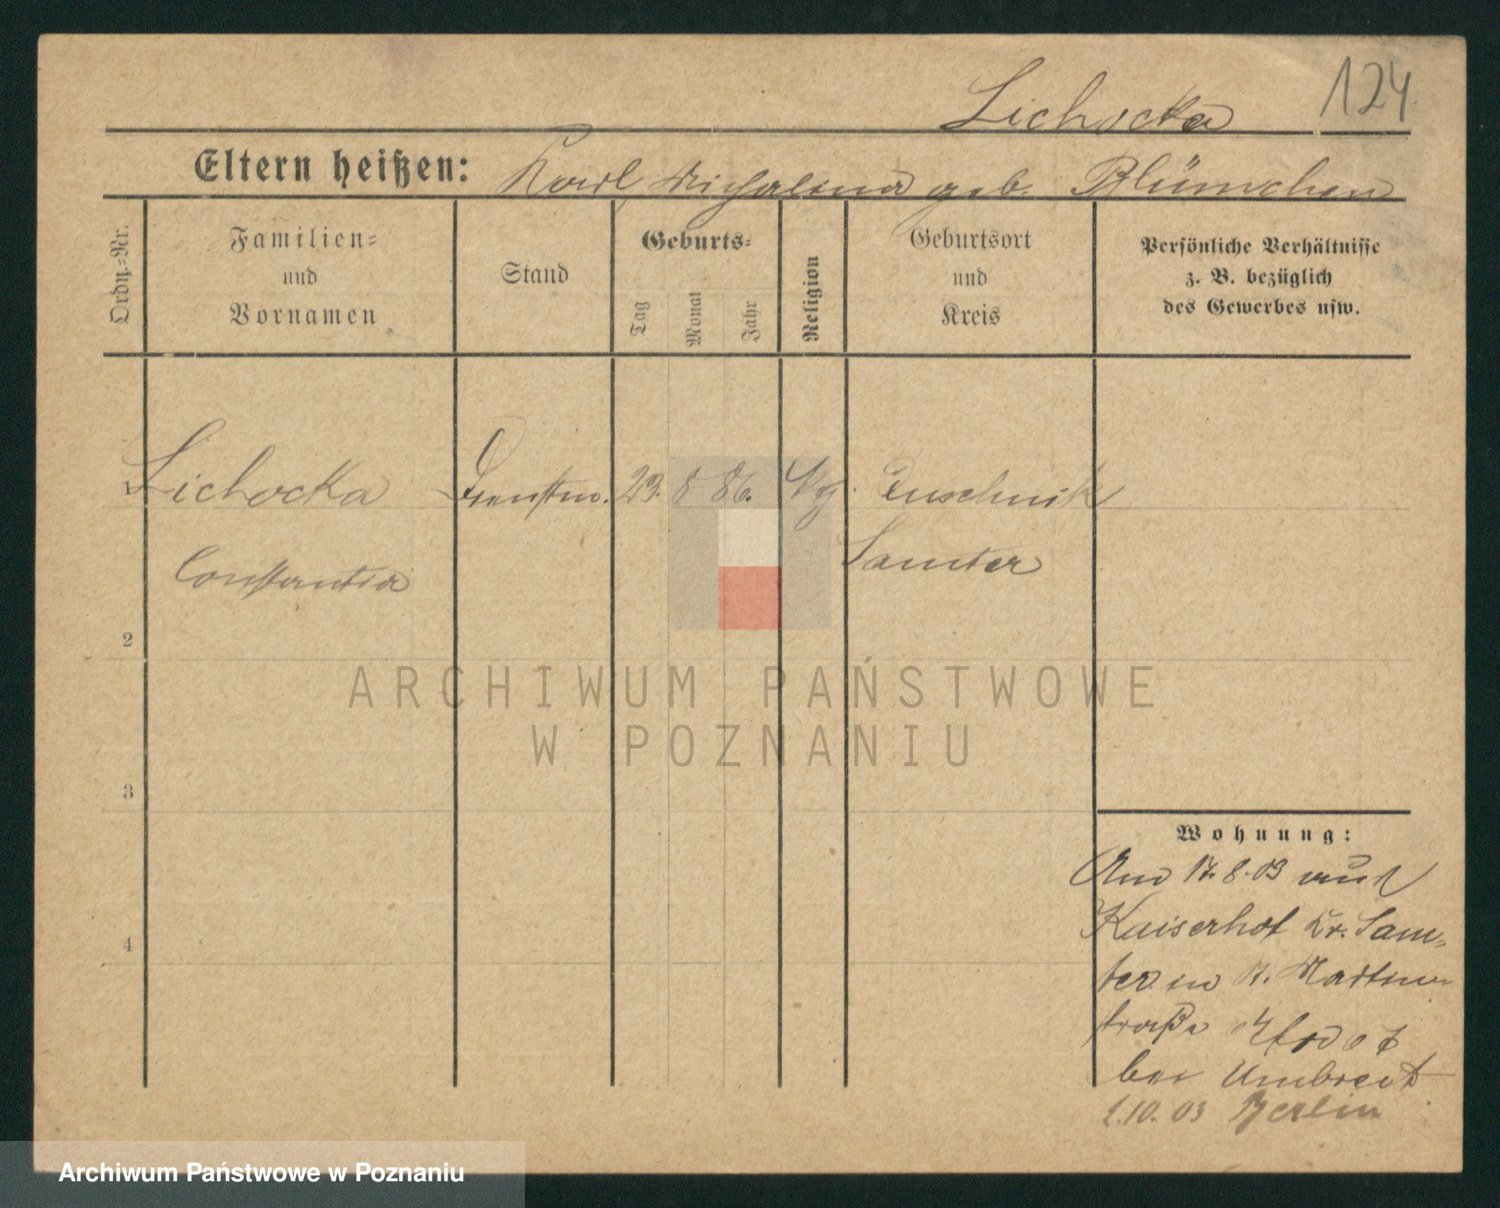 124
Lichocka
Eltern heißen: Karl Michalina geb. Blümchen
Ordn.-Nr.
Familien-
und
Vornamen
Stand
Geburts-
Tag
Monat
Jahr
Religion
Geburtsort
und
Kreis
Persönliche Verhältnisse
z. B. bezüglich
des Gewerbes usw.
1 Lichocka Dienstm. 23. 8 86. Kg. Luschnik
Constantia Samter
2
ARCHIWUM PAŃSTWOWE
W POZNANIU
3
Wohnung:
Am 17.8.03 aus
Kaiserhof Kr. Sam-
ter in St. Martin-
straße
bei Umbreit
1.10.03 Berlin
4
Archiwum Państwowe w Poznaniu